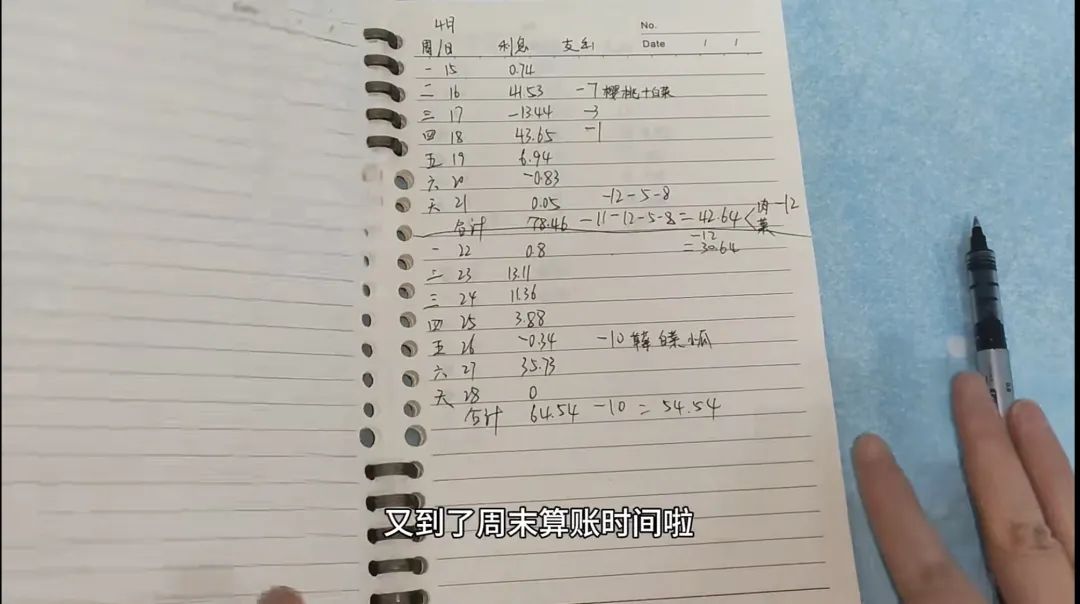 4月
No.
Date / /
周/日 利息 支出
一 15 0.74
二 16 41.53 -7 樱桃+白菜
三 17 -13.44 -3
四 18 43.65 -1
五 19 6.94
六 20 -0.83
天 21 0.05 -12-5-8
合计 78.46 -11-12-5-8=42.64<肉菜-12
-12
=30.64
一 22 0.8
二 23 13.11
三 24 11.36
四 25 3.88
五 26 -0.34 -10 白菜
六 27 35.73
天 28 0
合计 64.54 -10=54.54
又到了周末算账时间啦